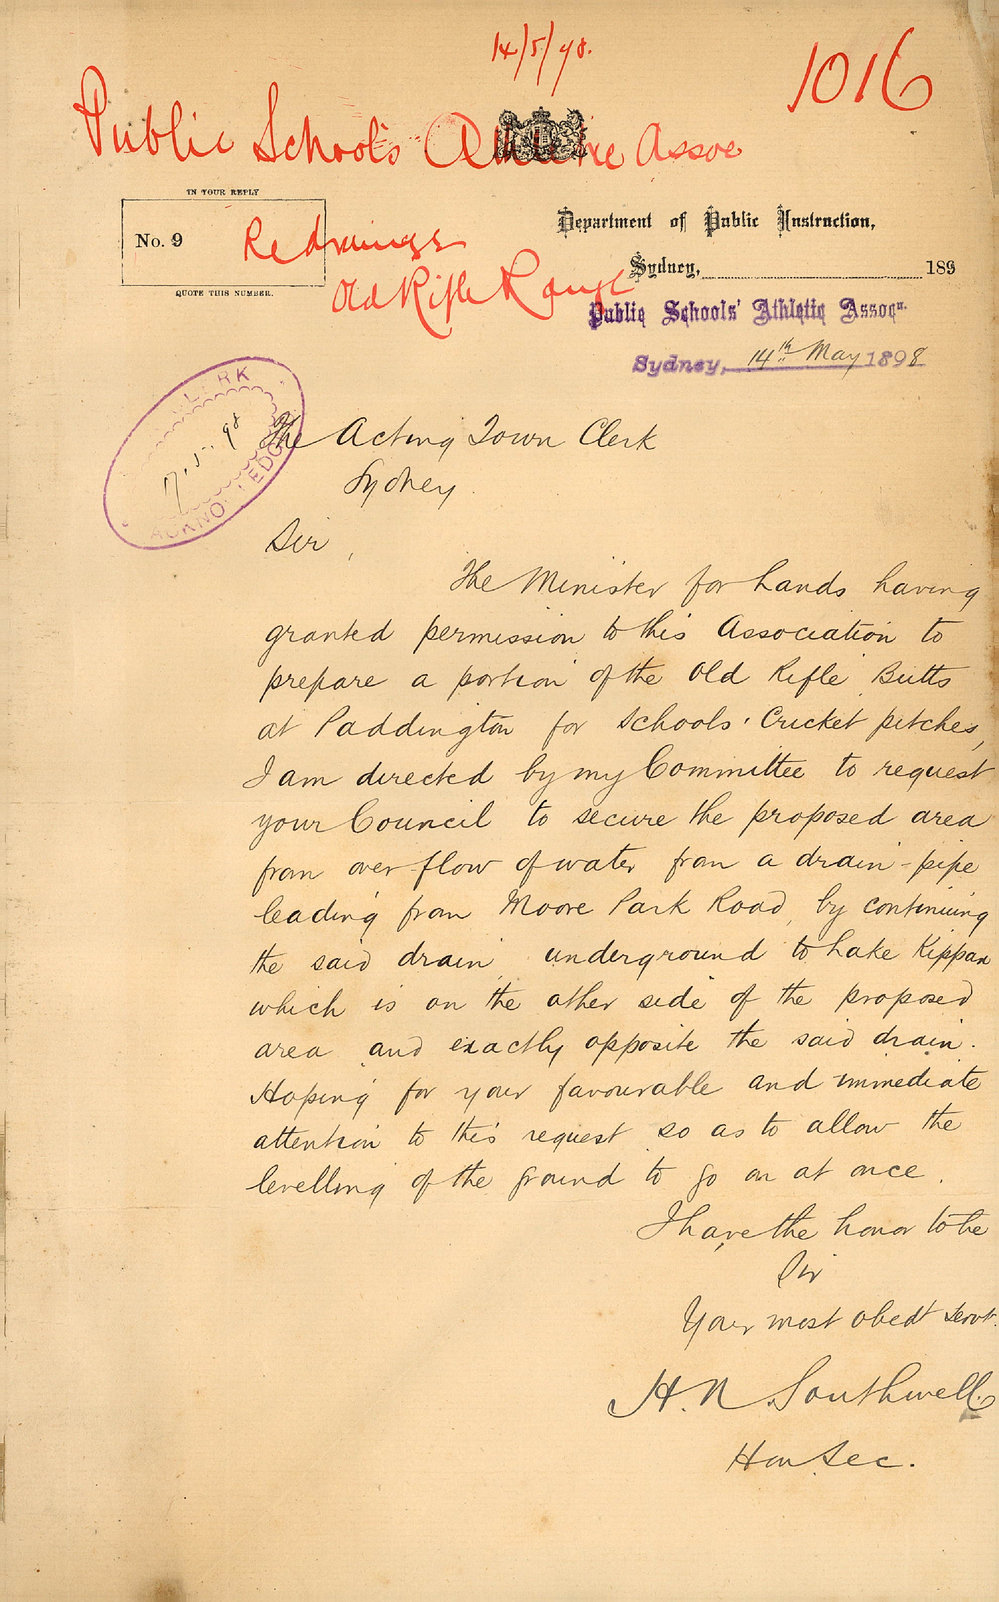 14/5/98.
1016
Public Schools Athletic Assoc
IN YOUR REPLY
No. 9
QUOTE THIS NUMBER.
Re drainage
Old Rifle Range
Department of Public Instruction,
Sydney, 189
Public Schools' Athletic Assocn.
Sydney, 14th May 1898
CLERK
98
ACKNOWLEDGED
The Acting Town Clerk
Sydney.
Sir,
The Minister for Lands having
granted permission to this Association to
prepare a portion of the Old Rifle Butts
at Paddington for Schools' Cricket pitches,
I am directed by my Committee to request
your Council to secure the proposed area
from over-flow of water from a drain-pipe
leading from Moore Park Road, by continuing
the said drain underground to Lake Kippax
which is on the other side of the proposed
area and exactly opposite the said drain.
Hoping for your favourable and immediate
attention to this request so as to allow the
levelling of the ground to go on at once.
I have the honor to be
Sir
Your most obedt servt.
H. N. Southwell
Hon Sec.